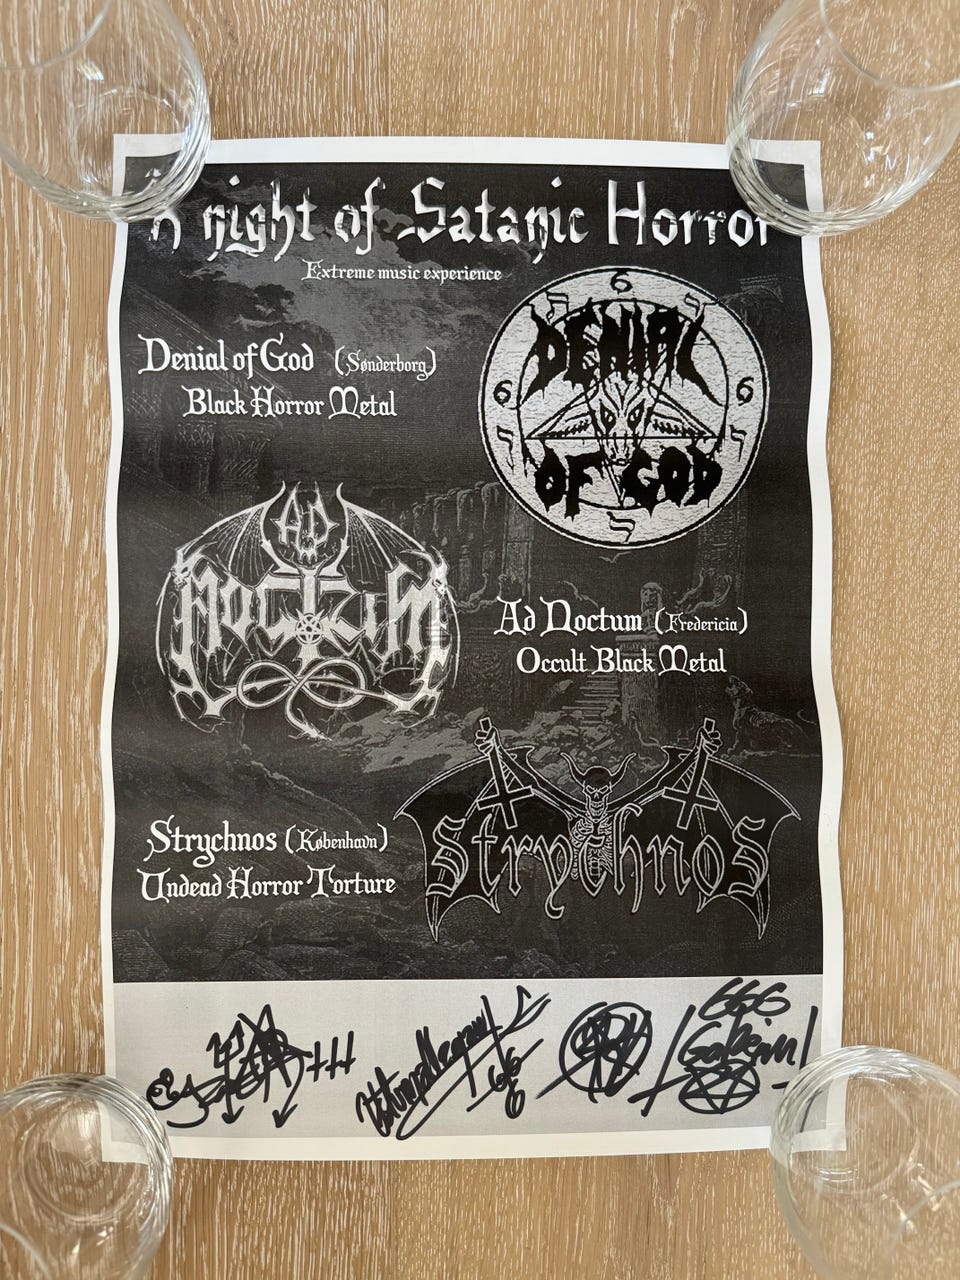 A night of Satanic Horror
Extreme music experience
6
6
6
DENIAL
OF GOD
Denial of God (Sønderborg)
Black Horror Metal
AD
NOCTUM
Ad Noctum (Fredericia)
Occult Black Metal
Strychnos
Strychnos (København)
Undead Horror Torture
666
666